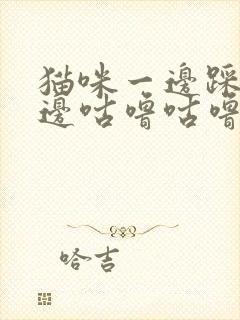 猫咪一邊踩
邊咕嚕咕嚕
哈吉